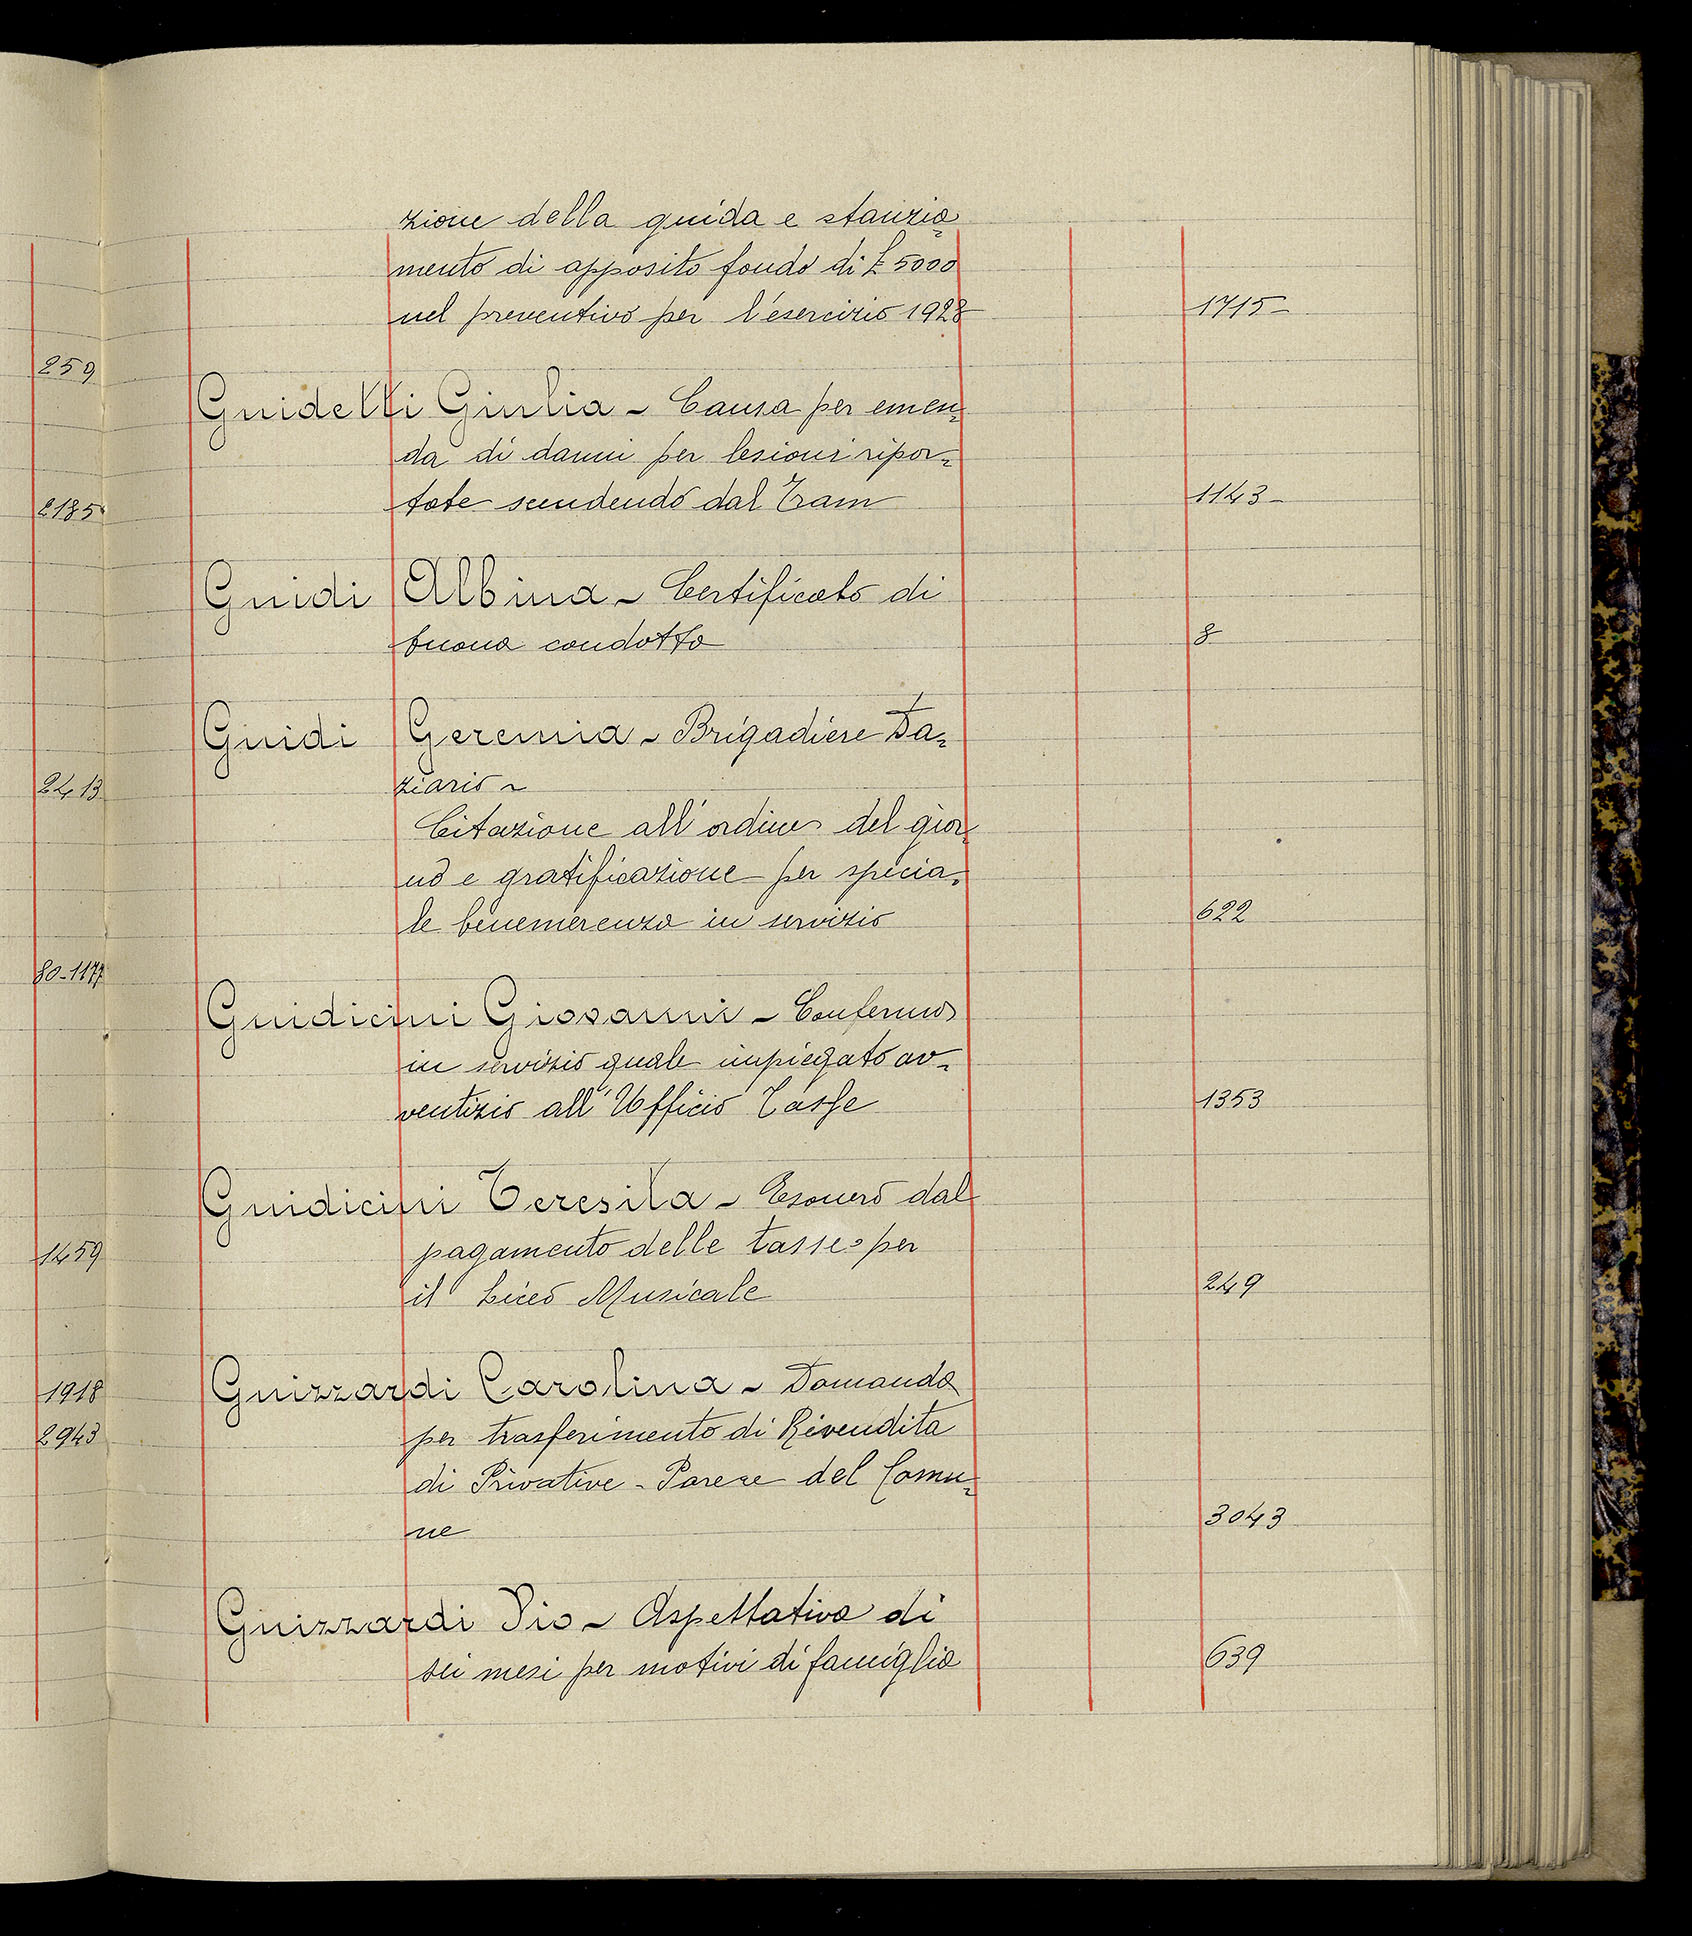 zione della guida e stanzia=
mento di apposito fondo di £ 5000
nel preventivo per l'esercizio 1928 1715-
259
Guidetti Giulia - Causa per emen=
da di danni per lesioni ripor=
tate scendendo dal Tram 1143-
2185
Guidi Albina - Certificato di
buona condotta 8
Guidi Geremia - Brigadiere Da=
ziario -
2413
Citazione all'ordine del gior=
no e gratificazione per specia=
le benemerenza in servizio 622
80-1177
Guidicini Giovanni - Conferma
in servizio quale impiegato av=
ventizio all'Ufficio Tasse 1353
Guidicini Teresita - Esonero dal
pagamento delle tasse per
1459
il Liceo Musicale 249
Guizzardi Carolina - Domanda
1918
per trasferimento di Rivendita
2943
di Privative - Parere del Comu=
ne 3043
Guizzardi Pio - Aspettativa di
sei mesi per motivi di famiglia 639